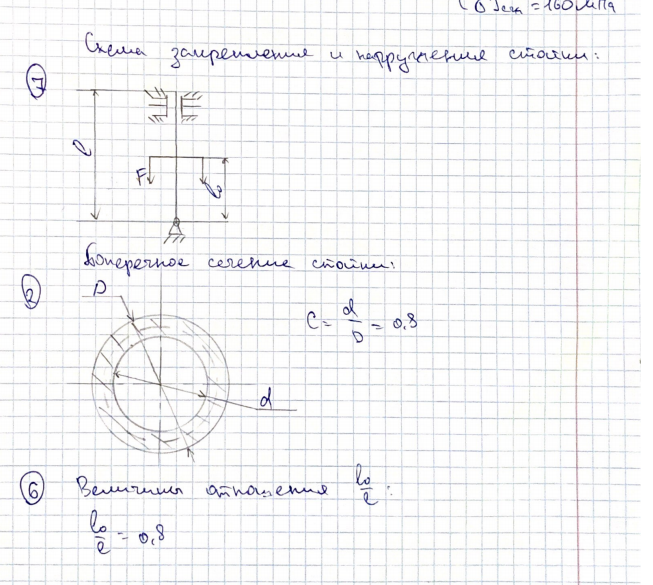 [σ]сж = 160 МПа
Схема закрепления и нагружения стойки:
7
l
F
l₀
Поперечное сечение стойки:
2
D
C = d/D = 0,8
d
6 Величины отношения l₀/l:
l₀/l = 0,8